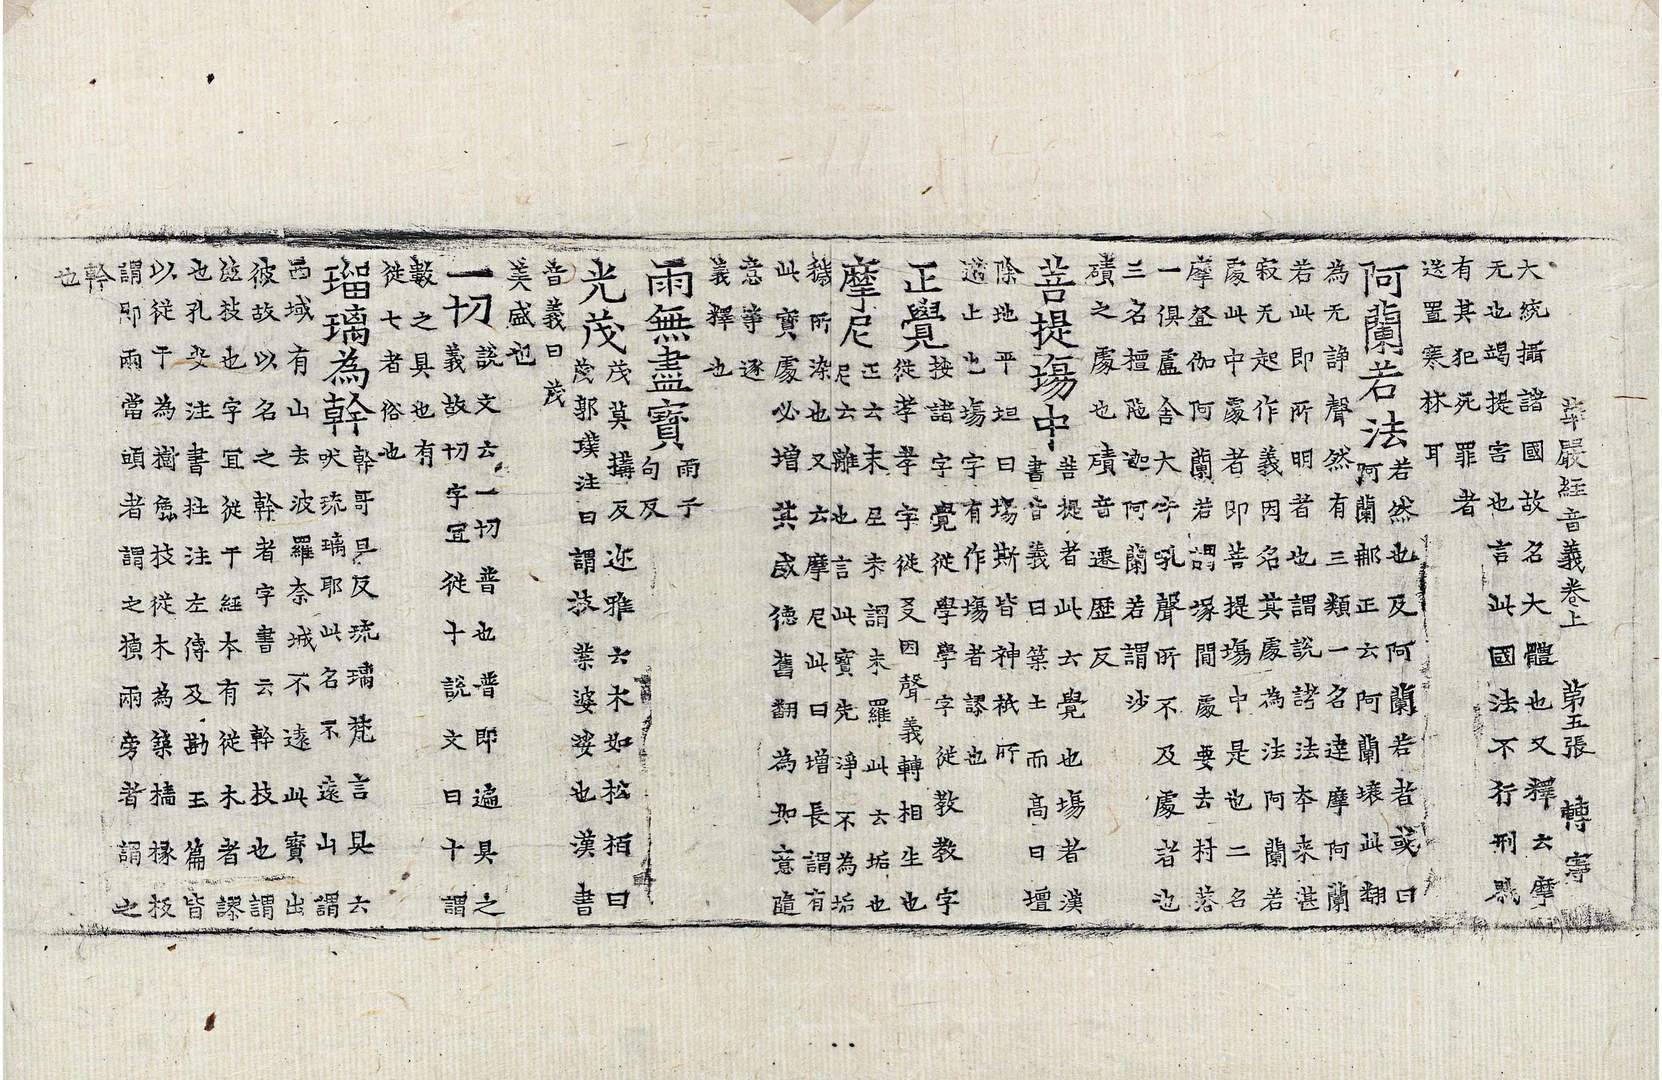 華嚴經音義卷上 第五張 轉 寧
大統攝諸國故名大體也又釋云摩
无也竭提害也言此國法不行刑戮
有其犯死罪者
送置寒林耳
阿蘭若法
若然也反阿蘭若者或曰
阿蘭那正云阿蘭攘此翻
為无諍聲然有三類一名達摩阿蘭
若此即所明者也謂說諸法本来湛
寂无起作義因名其處為法阿蘭若
處此中處者即菩提塲中是也二名
摩登伽阿蘭若謂塚間處要去村落
一俱盧舍大牛吼聲所不及處者也
三名檀陁迦阿蘭若謂沙
磧之處也磧音遷歷反
菩提塲中
菩提者此云覺也塲者漢
書音義曰築土而高曰壇
除地平坦曰塲斯皆神祇所
遊止也塲字有作塲者謬也
正覺
按諸字覺從學學字從教教字
從孝孝字從爻因聲義轉相生也
摩尼
正云末尼末謂末羅此云垢也
尼云離也言此寶光淨不為垢
穢所染也又云摩尼此曰增長謂有
此寶處必增其威德舊翻為如意隨
意等逐
義釋也
雨無盡寶
雨于
句反
光茂
茂莫搆反迩雅云木如松栢曰
茂郭璞注曰謂枝葉婆娑也漢書
音義曰茂
美盛也
一切
說文云一切普也普即遍具之
義故切字宜從十說文曰十謂
數之具也有
從七者俗也
瑠璃為幹
幹哥旦反琉璃梵言具云
吠琉璃耶此名不遠山謂
西域有山去波羅奈城不遠此寶出
彼故以名之幹者字書云幹枝也謂
莖枝也字宜從干經本有從木者謬
也孔安注書杜注左傳及勘玉篇皆
以從干為樹枝從木為築墻椽板
謂即兩當頭者謂之楨兩旁者謂之
幹
也